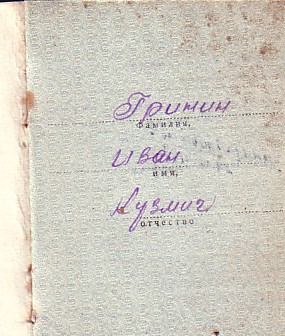 Гринин
фамилия,
Иван
имя,
Кузмич
отчество